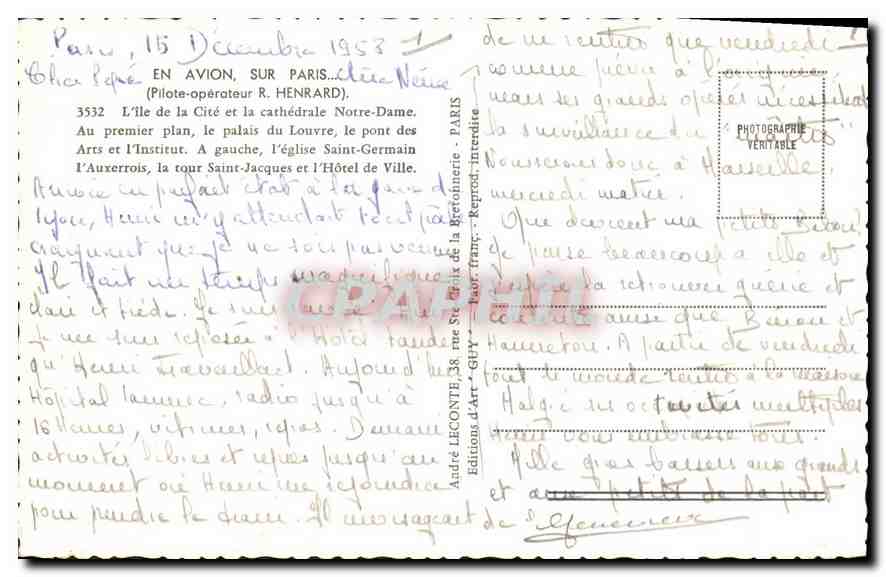 Paris, 15 Décembre 1953
Cher Pépé chère Mémé
EN AVION, SUR PARIS...
(Pilote-opérateur R. HENRARD).
3532 L'île de la Cité et la cathédrale Notre-Dame.
Au premier plan, le palais du Louvre, le pont des
Arts et l'Institut. A gauche, l'église Saint-Germain
l'Auxerrois, la tour Saint-Jacques et l'Hôtel de Ville.
en parfait état à la gare de
Lyon, Henri m'y attendait
craignant que je ne sois pas venue
Il fait un temps magnifique
clair et tiède. Je
je me suis reposée à l'Hôtel tandis
qu'Henri travaillait. Aujourd'hui
Hôpital radio jusqu'à
16 heures, vitrines, repos. Demain
activités libres et repos jusqu'au
moment où Henri me rejoindra
pour prendre le train. Il envisageait
André LECONTE, 38, rue Ste-Croix de la Bretonnerie - PARIS
Editions d'Art "GUY" - Fabr. franç. - Reprod. interdite
de ne rentrer que vendredi
comme prévu à l'origine
mais ses grands opérés nécessitent
la surveillance du
Nous serons donc à Marseille
mercredi matin.
PHOTOGRAPHIE
VÉRITABLE
Que devient ma petite
Je pense beaucoup à elle et
j'espère la retrouver guérie et
que et
A partir de vendredi
tout le monde rentre à la maison
Malgré ses activités multiples
Henri vous embrasse tous.
Mille gros baisers aux grands
et aux petits de la part
de Geneviève
CPAPHIL